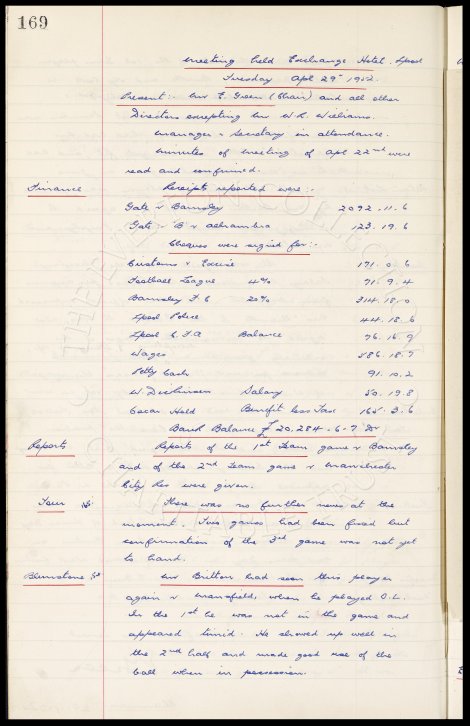 169
Meeting held Exchange Hotel. Lpool
Tuesday Apl 29th 1952.
Present:- Mr E. Green (Chair) and all other
Directors excepting Mr W. R. Williams.
Manager & Secretary in attendance.
Minutes of meeting of Apl 22nd were
read and confirmed.
Finance Receipts reported were:-
Gate v Barnsley 2092. 11. 6
Gate - "B" v Alhambra 123. 19. 6
Cheques were signed for:-
Customs & Excise 171. 0. 6
Football League 4% 71. 9. 4
Barnsley F.C 20% 314. 18. 0
Lpool Police 44. 18. 6
Lpool C.F.A Balance 76. 16. 9
Wages 586. 18. 7
Petty Cash 91. 10. 2
W. Dickinson Salary 50. 19. 8
Oscar Hold Benefit less Tax 165. 3. 6
Bank Balance £20,284. 6. 7 Dr
Reports Reports of the 1st Team game v Barnsley
and of the 2nd Team game v Manchester
City Res were given.
Tour There was no further news at the
moment. Two games had been fixed but
confirmation of the 3rd game was not yet
to hand.
Blunstone Mr Britton had seen this player
again v Mansfield, when he played O.L.
In the 1st he was not in the game and
appeared timid. He showed up well in
the 2nd half and made good use of the
ball when in possession.
THE EVERTON COLLECTION
CHARITABLE TRUST